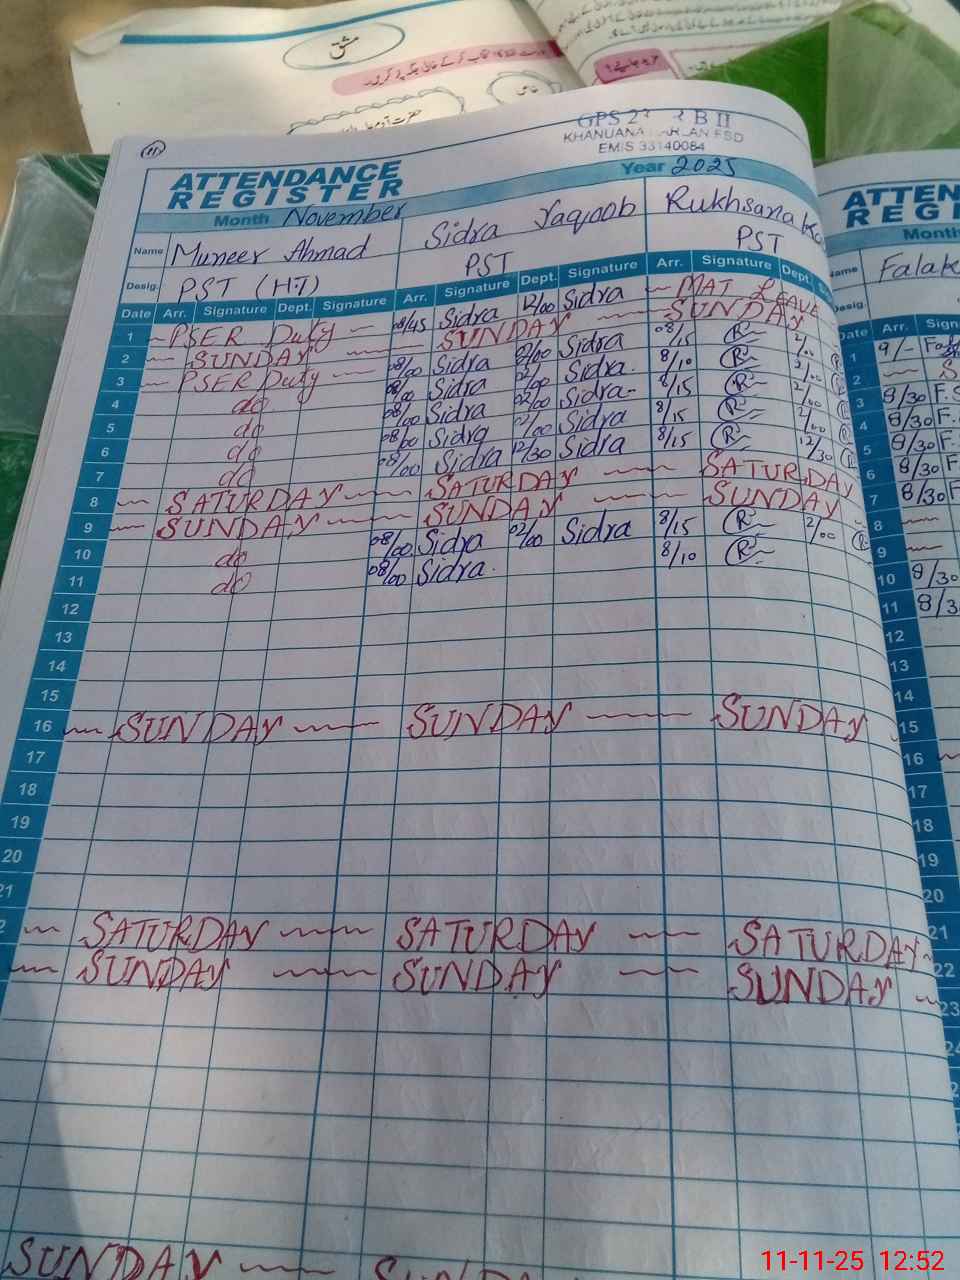 مشق
حصہ
مزید جانیے!
11
GPS 2 R B II
KHANUANA FSD
EMIS 33140084
ATTENDANCE REGISTER
Month November Year 2025
Name Muneer Ahmad Sidra Yaqoob Rukhsana
Desig. PST (H.T) PST PST
Date Arr. Signature Dept. Signature Arr. Signature Dept. Signature Arr. Signature Dept.
1 PSER Duty 08/45 Sidra 12/00 Sidra MAT LEAVE
2 SUNDAY SUNDAY SUNDAY
3 PSER Duty 08/00 Sidra 02/00 Sidra 08/15 R 2/00
4 do 08/00 Sidra 02/00 Sidra 8/10 R 2/00
5 do 08/00 Sidra 02/00 Sidra 8/15 R 2/00
6 do 08/00 Sidra 02/00 Sidra 8/15 R 2/00
7 do 08/00 Sidra 12/30 Sidra 8/15 R 12/30
8 SATURDAY SATURDAY SATURDAY
9 SUNDAY SUNDAY SUNDAY
10 do 08/00 Sidra 02/00 Sidra 8/15 R 2/00
11 do 08/00 Sidra. 8/10 R
12
13
14
15
16 SUNDAY SUNDAY SUNDAY
17
18
19
20
21
SATURDAY SATURDAY SATURDAY
SUNDAY SUNDAY SUNDAY
SUNDAY
ATTEN
REGI
Month
Name Falak
Desig.
Date Arr. Sign
1 9/-
2
3 8/30 F.S
4 8/30 F.
5 8/30 F.
6 8/30 F.
7 8/30 F
8
9
10 8/30
11 8/3
12
13
14
15
16
17
18
19
20
21
22
23
11-11-25 12:52